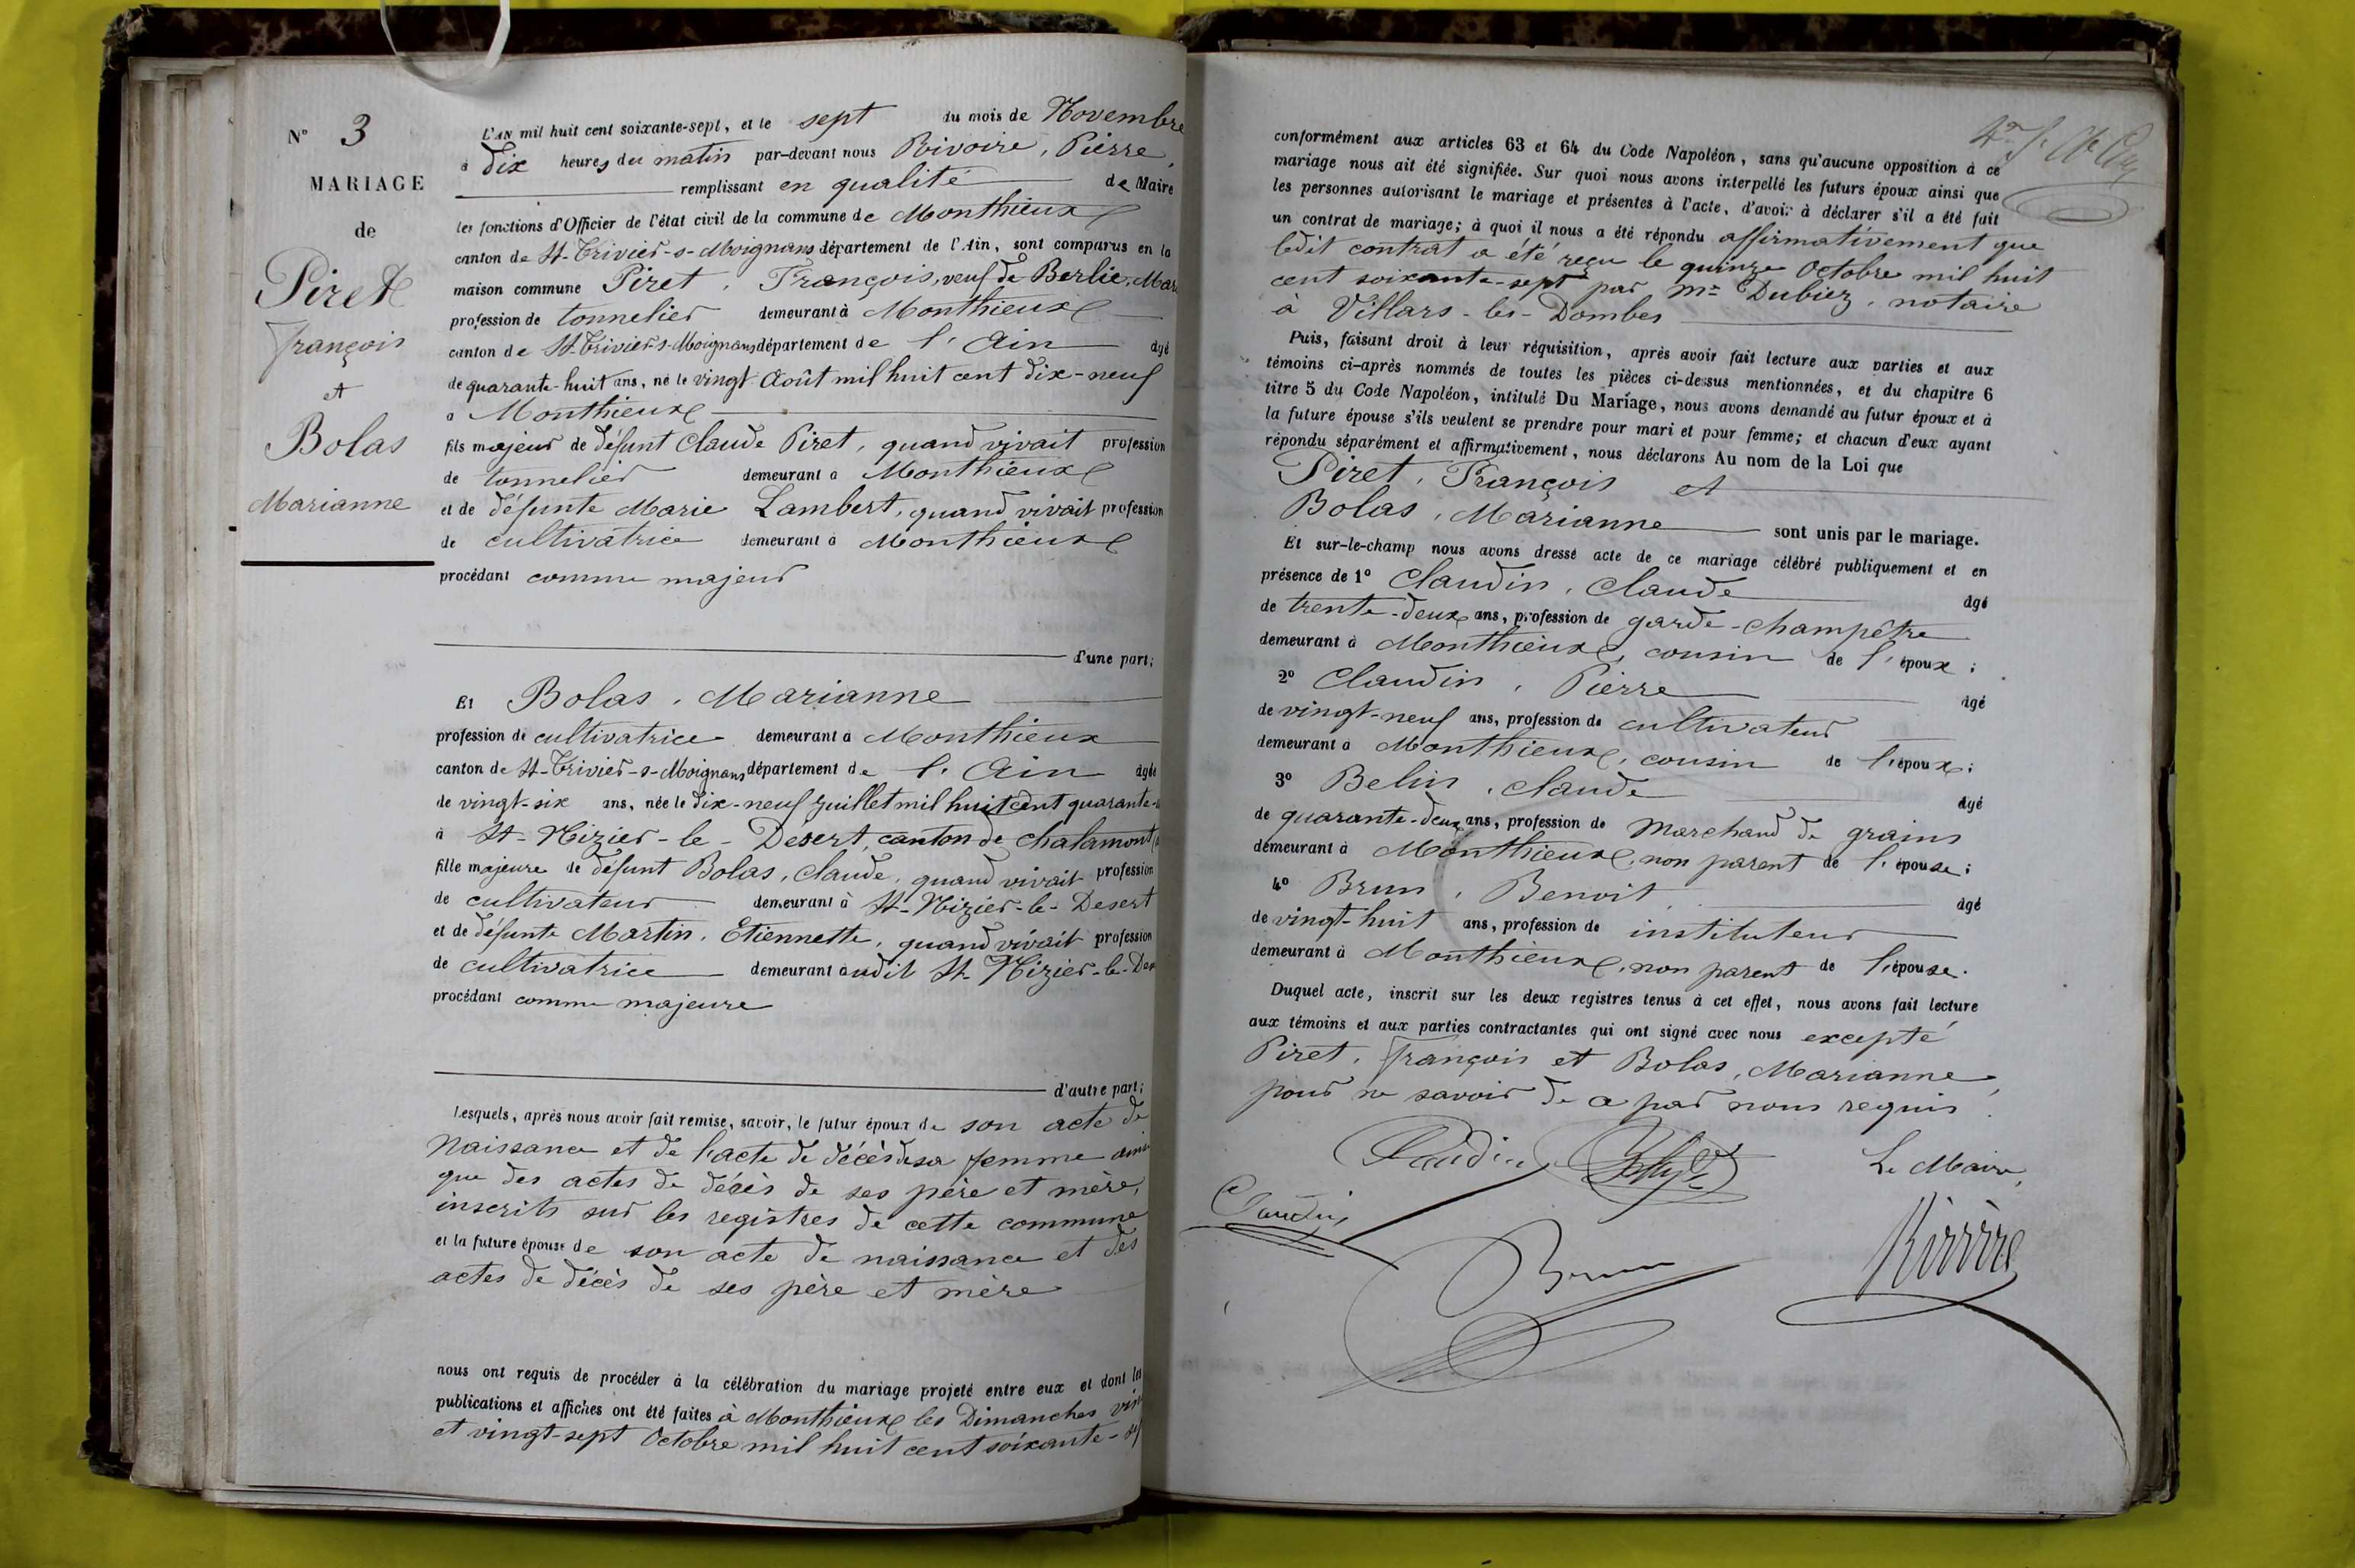 N° 3
MARIAGE
de
Piret
François
et
Bolas
Marianne
L'AN mil huit cent soixante-sept, et le sept du mois de Novembre
à dix heures du matin par-devant nous Rivoire, Pierre,
remplissant en qualité de Maire
les fonctions d'Officier de l'état civil de la commune de Monthieux
canton de St-Trivier-s-Moignans département de l'Ain, sont comparus en la
maison commune Piret, François, veuf de Berlie, Mar
profession de tonnelier demeurant à Monthieux
canton de St-Trivier-s-Moignans département de l'Ain âgé
de quarante-huit ans, né le vingt Août mil huit cent dix-neuf
à Monthieux
fils majeur de défunt Claude Piret, quand vivait profession
de tonnelier demeurant à Monthieux
et de défunte Marie Lambert, quand vivait profession
de cultivatrice demeurant à Monthieux
procédant comme majeur
d'une part;
Et Bolas, Marianne
profession de cultivatrice demeurant à Monthieux
canton de St-Trivier-s-Moignans département de l'Ain âgée
de vingt-six ans, née le dix-neuf Juillet mil huit cent quarante-
à St-Nizier-le-Desert, canton de Chalamont
fille majeure de défunt Bolas, Claude, quand vivait profession
de cultivateur demeurant à St-Nizier-le-Desert
et de défunte Martin, Etiennette, quand vivait profession
de cultivatrice demeurant audit St-Nizier-le-Des
procédant comme majeure
d'autre part;
Lesquels, après nous avoir fait remise, savoir, le futur époux de son acte de
Naissance et de l'acte de décès de sa femme ainsi
que des actes de décès de ses père et mère,
inscrits sur les registres de cette commune
et la future épouse de son acte de naissance et des
actes de décès de ses père et mère
nous ont requis de procéder à la célébration du mariage projeté entre eux et dont les
publications et affiches ont été faites à Monthieux les Dimanches vin
et vingt-sept Octobre mil huit cent soixante-
conformément aux articles 63 et 64 du Code Napoléon, sans qu'aucune opposition à ce
mariage nous ait été signifiée. Sur quoi nous avons interpellé les futurs époux ainsi que
les personnes autorisant le mariage et présentes à l'acte, d'avoir à déclarer s'il a été fait
un contrat de mariage; à quoi il nous a été répondu affirmativement que
ledit contrat a été reçu le quinze Octobre mil huit
cent soixante-sept par Me Dubiez, notaire
à Villars-les-Dombes
Puis, faisant droit à leur réquisition, après avoir fait lecture aux parties et aux
témoins ci-après nommés de toutes les pièces ci-dessus mentionnées, et du chapitre 6
titre 5 du Code Napoléon, intitulé Du Mariage, nous avons demandé au futur époux et à
la future épouse s'ils veulent se prendre pour mari et pour femme; et chacun d'eux ayant
répondu séparément et affirmativement, nous déclarons Au nom de la Loi que
Piret, François et
Bolas, Marianne sont unis par le mariage.
Et sur-le-champ nous avons dressé acte de ce mariage célébré publiquement et en
présence de 1° Claudin, Claude âgé
de trente-deux ans, profession de garde-champêtre
demeurant à Monthieux, cousin de l'époux;
2° Claudin, Pierre âgé
de vingt-neuf ans, profession de cultivateur
demeurant à Monthieux, cousin de l'époux;
3° Belin, Claude âgé
de quarante-deux ans, profession de Marchand de grains
demeurant à Monthieux, non parent de l'épouse;
4° Brun, Benoit âgé
de vingt-huit ans, profession de instituteur
demeurant à Monthieux, non parent de l'épouse.
Duquel acte, inscrit sur les deux registres tenus à cet effet, nous avons fait lecture
aux témoins et aux parties contractantes qui ont signé avec nous excepté
Piret, François et Bolas, Marianne
pour ne savoir de ce par nous requis.
Claudin
Le Maire,
Claudin
Brun
Rivoire